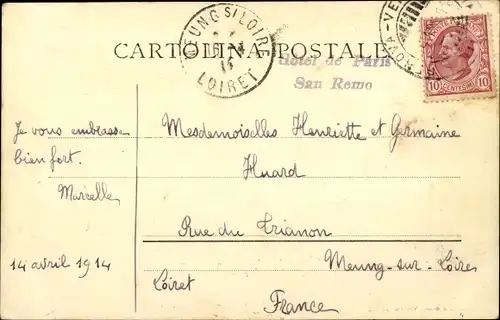 CARTOLINA POSTALE
MEUNG S/ LOIRE
LOIRET
Hotel de Paris
San Remo
10 CENTESIMI 10
Je vous embrasse
bien fort.
Marcelle
14 avril 1914
Mesdemoiselles Henriette et Germaine
Huard
Rue du Trianon
Meung-sur-Loire
Loiret
France